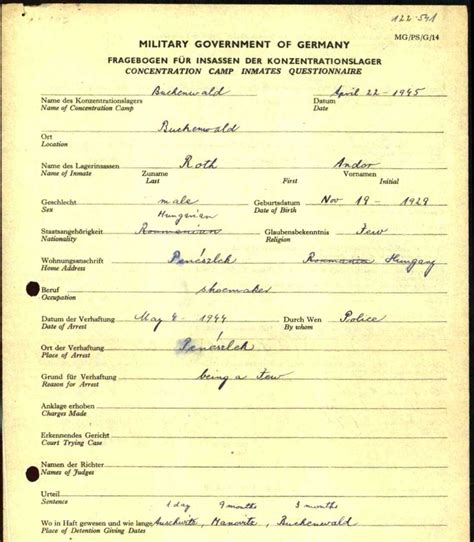 122.541
MG/PS/G/14
MILITARY GOVERNMENT OF GERMANY
FRAGEBOGEN FÜR INSASSEN DER KONZENTRATIONSLAGER
CONCENTRATION CAMP INMATES QUESTIONNAIRE
Name des Konzentrationslagers Buchenwald Datum April 22-1945
Name of Concentration Camp Date
Ort Buchenwald
Location
Name des Lagerinsassen Roth Andor
Name of Inmate Zuname Vornamen
Last First Initial
Geschlecht male Geburtsdatum Nov 19-1929
Sex Date of Birth
Hungarian
Staatsangehörigkeit Roumanian Glaubensbekenntnis Jew
Nationality Religion
Wohnungsanschrift Penészlek Roumania Hungary
Home Address
Beruf shoemaker
Occupation
Datum der Verhaftung May 4-1944 Durch Wen Police
Date of Arrest By whom
Ort der Verhaftung Penészlek
Place of Arrest
Grund für Verhaftung being a Jew
Reason for Arrest
Anklage erhoben
Charges Made
Erkennendes Gericht
Court Trying Case
Namen der Richter
Names of Judges
Urteil
Sentence
1 day 9 months 3 months
Wo in Haft gewesen und wie lange Auschwitz, Buchenwald
Place of Detention Giving Dates